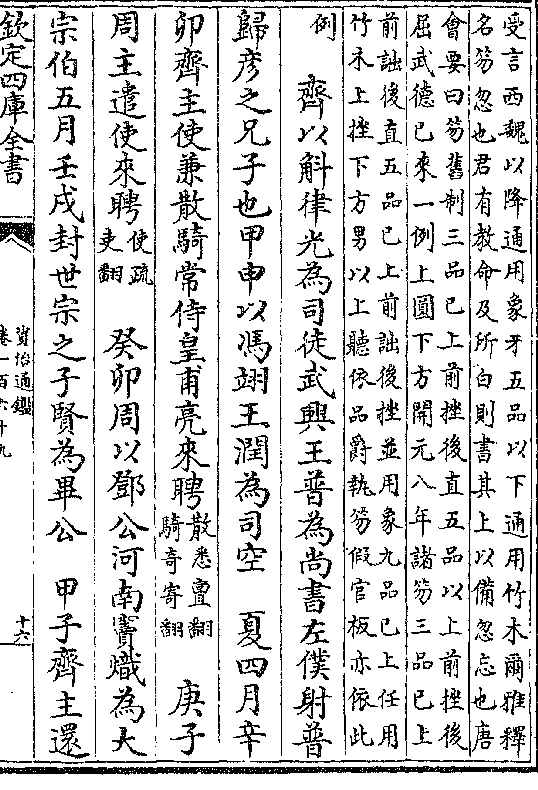 受言西魏以降通用象牙五品以下通用竹木爾雅釋
名笏忽也君有教命及所白則書其上以備忽忘也唐
會要曰笏舊制三品已上前挫後直五品以上前挫後
屈武德已來一例上圓下方開元八年諸笏三品已上
前詘後直五品已上前詘後挫並用象九品已上任用
竹木上挫下方男以上聽依品爵執笏假官板亦依此
例
齊以斛律光為司徒武興王普為尚書左僕射普
歸彦之兄子也甲申以馮翊王潤為司空 夏四月辛
卯齊主使兼散騎常侍皇甫亮來聘散悉亶翻
騎奇寄翻
庚子
周主遣使來聘使疏
吏翻
癸卯周以鄧公河南竇熾為大
宗伯五月壬戌封世宗之子賢為畢公 甲子齊主還
欽定四庫全書
資治通鑑
卷一百六十九
十六